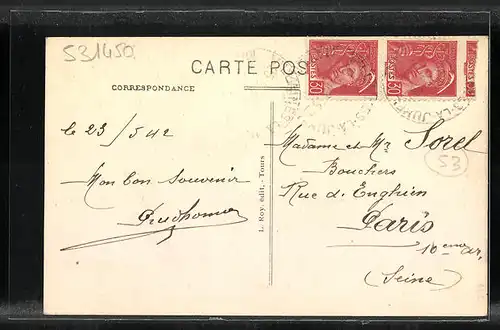 531450
CARTE POS
CORRESPONDANCE
le 23/5/42
Mon bon souvenir
Prudhomme
L. Roy, édit., Tours
Madame et Mr Sorel
Bouchers
Rue d'Enghien
Paris
10 eme ar.
(Seine)
53